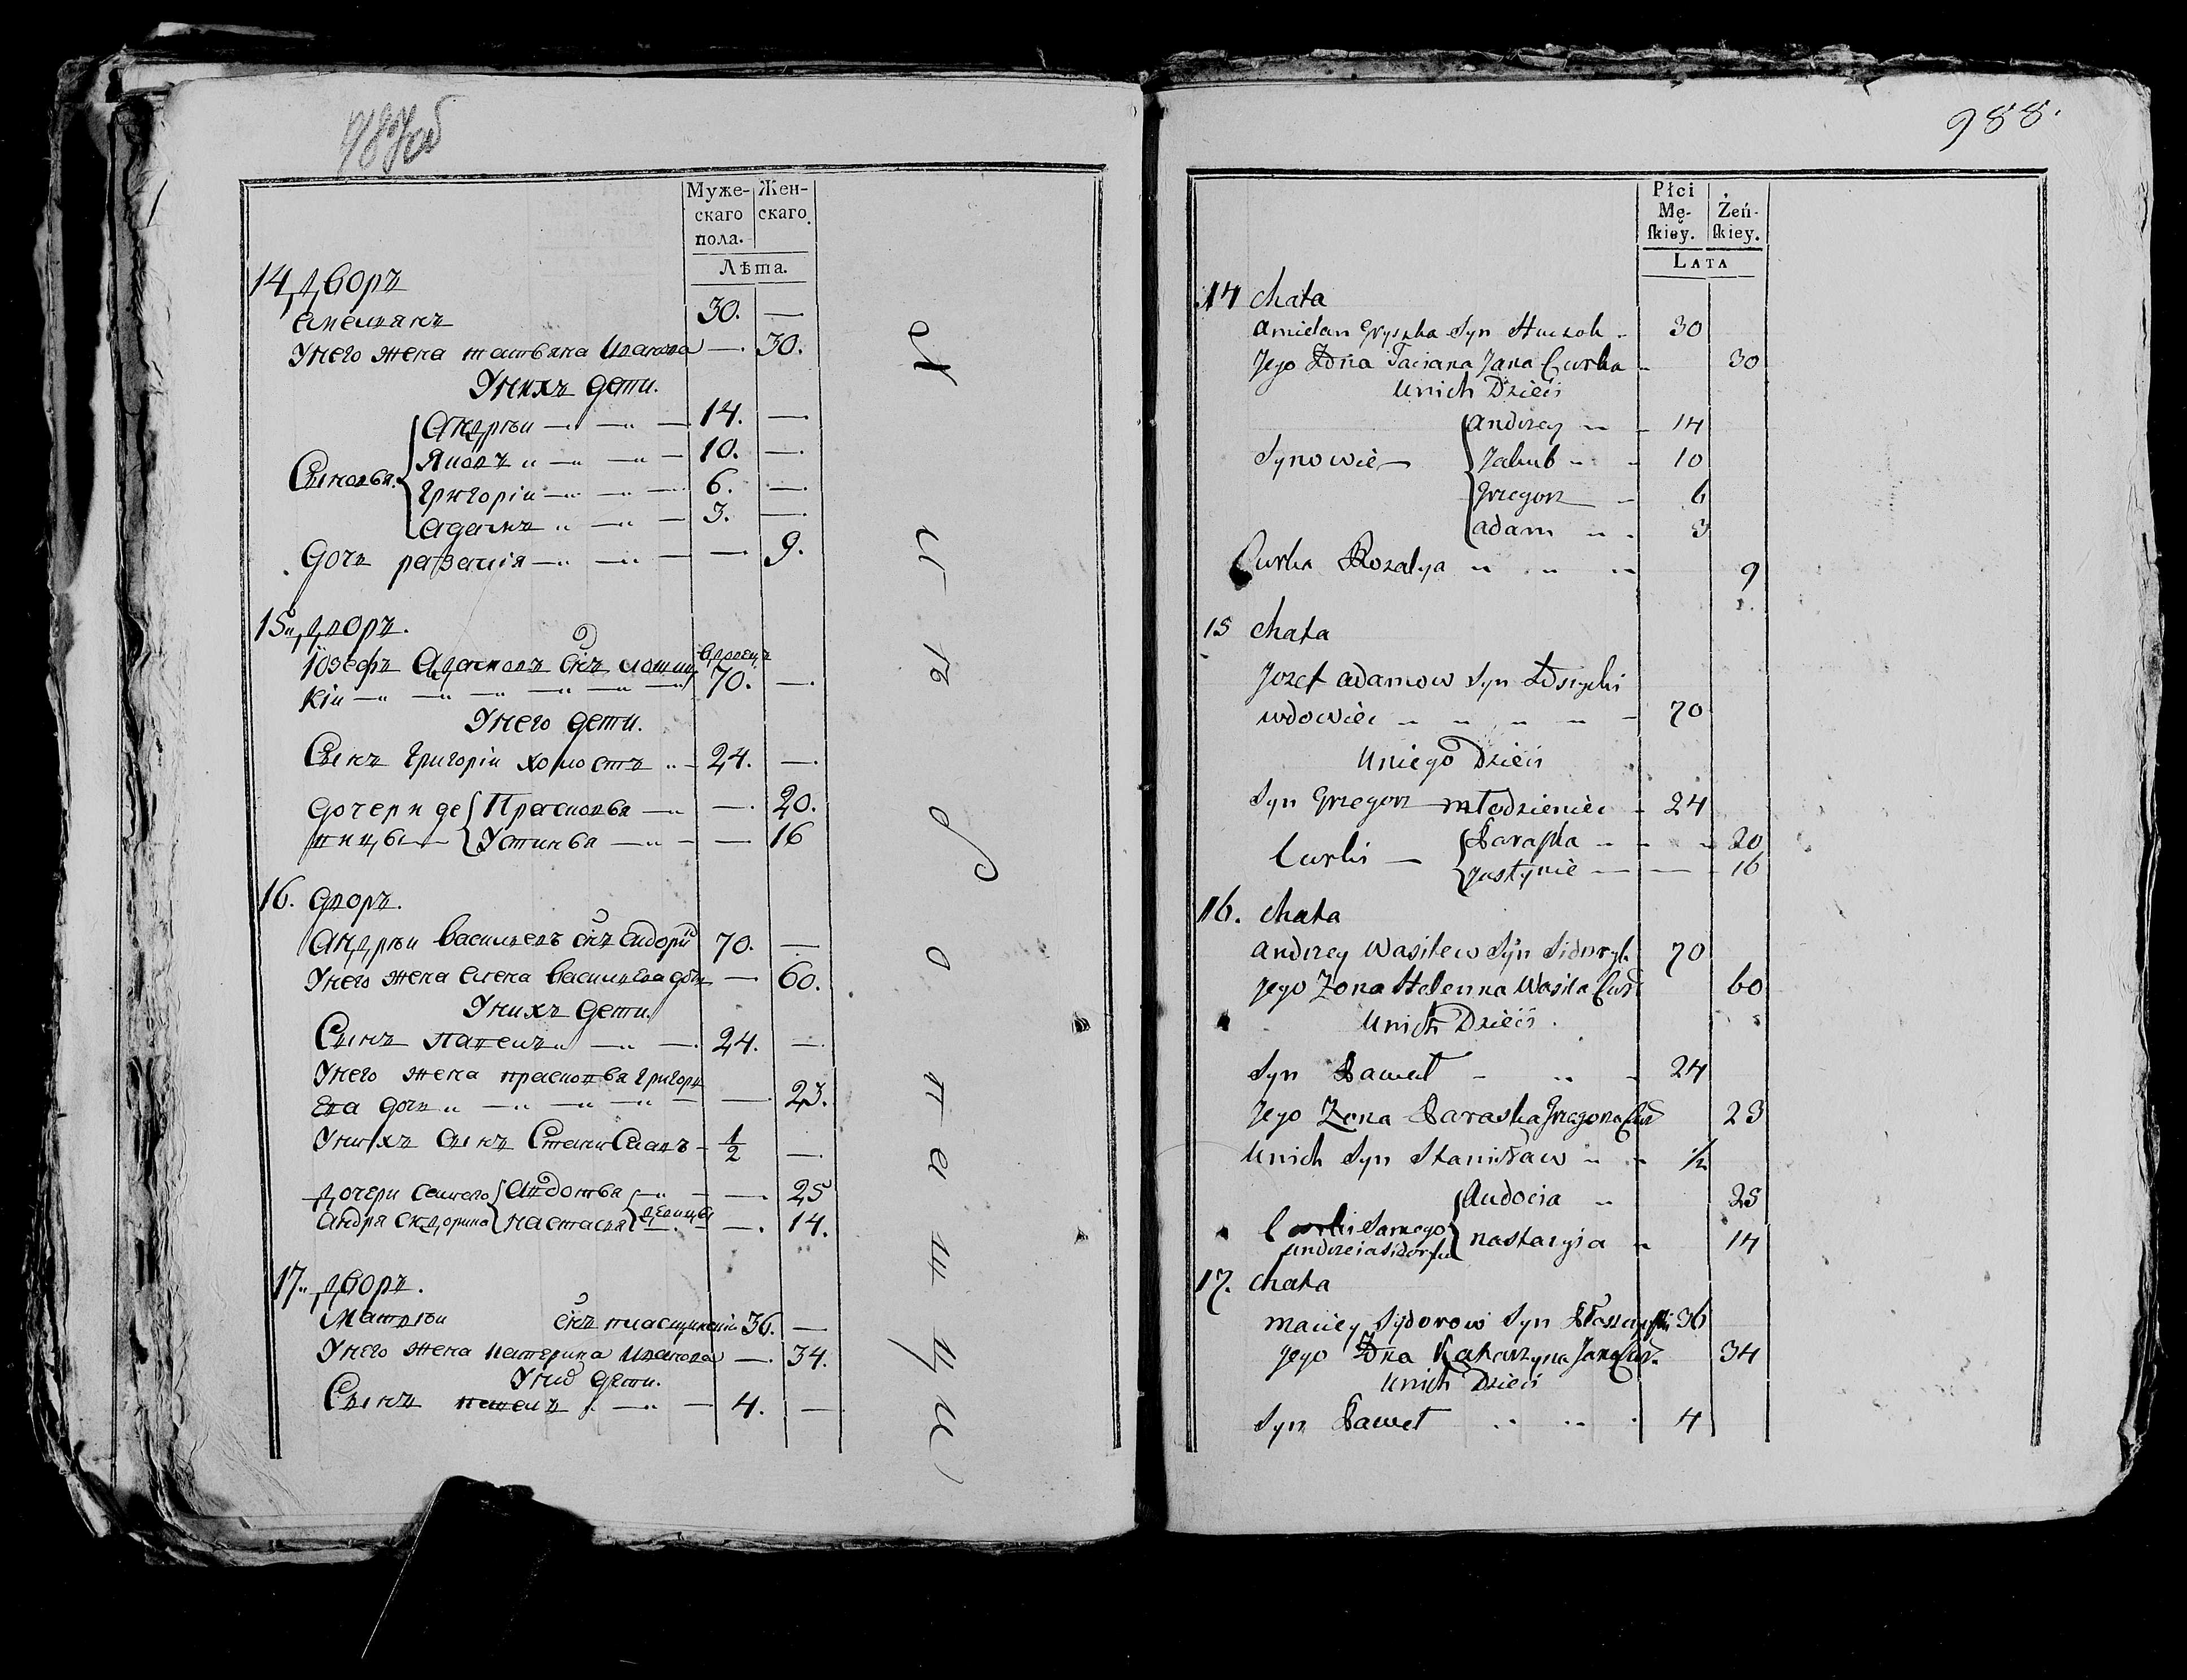 Муже-
скаго
пола.
Жен-
скаго.
Лѣта.
14 дворъ
Емельянъ 30. —
У него жена татьяна Иванова — 30.
У нихъ дети.
Сыновья
Андрѣи 14. —
Яковъ 10. —
Григоріи 6. —
Адамъ 3. —
дочь — 9.
15 дворъ.
Юзефъ Адамовъ снъ
вдовецъ
70. —
У него дети.
Сынъ Григоріи холостъ 24. —
дочери де
вицы
Прасковья — 20.
Устинья — 16
16. дворъ.
Андрѣи Васильевъ снъ 70. —
У него жена Елена Васильева — 60.
У нихъ дети.
Сынъ Павелъ 24. —
У него жена прасковья Григорь
ева дочь — 23.
У нихъ сынъ Станиславъ 1/2 —
дочери самого
Авдотья — 25
настасья — 14.
девицы
17 дворъ.
Матвѣи снъ 36. —
У него жена катерина Иванова — 34.
дети.
Сынъ павелъ 4. —
988.
Płci
Mę-
ſkiey.
Żeń-
ſkiey.
LATA
14 Chata
Amielan Gryszka Syn 30
Jego Żona Taciana Jana Curka 30
Unich Dzieci
Synowie
Andrzey 14
Jakub 10
Grzegorz 6
Adam 3
Curka Rozalya 9
15 Chata
Jozef Adamow Syn
wdowiec 70
Uniego Dzieci
Syn Grzegorz młodzieniec 24
Curki
Paraska 20
Justynie 16
16. Chata
Andrzey Wasilew Syn 70
Jego Żona Helenna Wasila Cur 60
Unich Dzieci.
Syn Paweł 24
Jego Żona Paraska Grzegorza Cur 23
Unich Syn Stanisław 1/2
Curki Samego
Andrzeia
Audocia 25
nastazyia 14
17. Chata
Maciey Sydorow Syn 36
Jego Żona Katarzyna Jana Cur. 34
Unich Dzieci
Syn Paweł 4